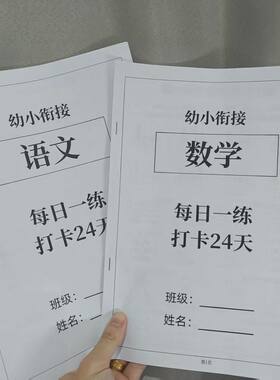 幼小衔接
语文
每日一练
打卡24天
班级：
姓名：
幼小衔接
数学
每日一练
打卡24天
班级：
姓名：